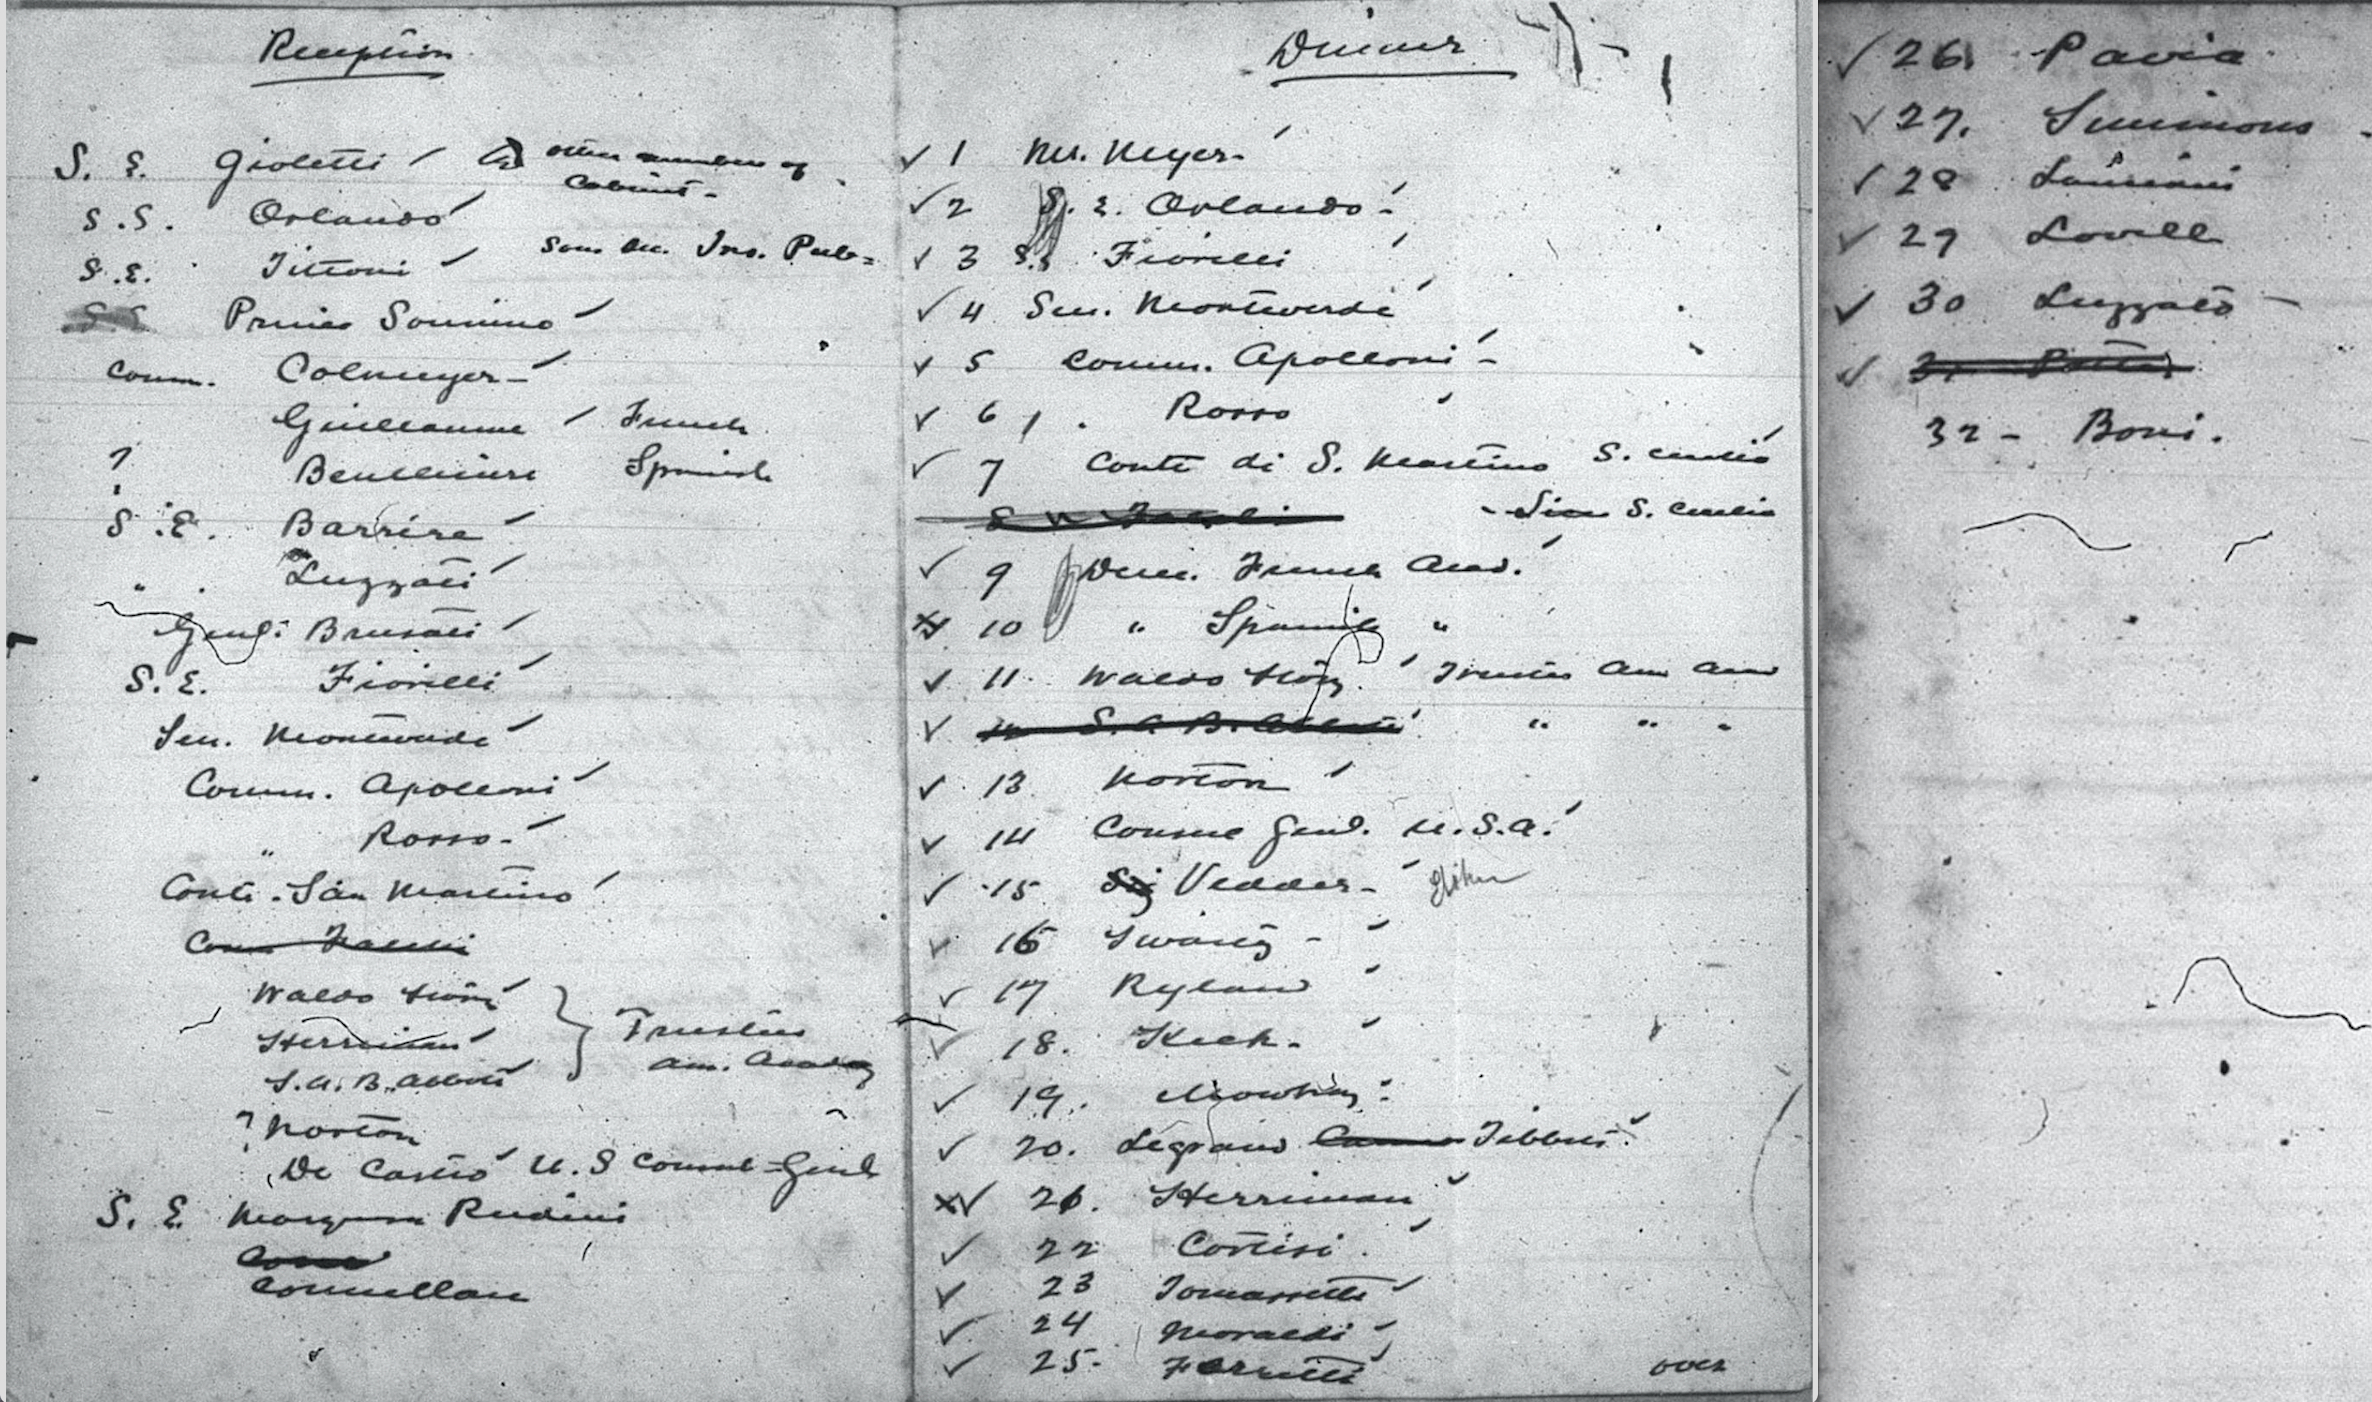 Reception
S. E. Gioletti & other members of
Cabinet -
S.S. Orlando
S.E. Tittoni Sous Sec. Ins. Pub=
S.S. Prince Sonnino
Comm. Colmeyer -
Guillaume French
? Benlliure Spanish
S.E. Barrère
" Luzzati
Genl. Brusati
S. E. Fiorilli
Sen. Monteverde
Comm. Apolloni
" Rosso -
Conte San Martino
Waldo Story
Herriman
S.A.B. Abbott
Trustees
Am. Academy
? Norton
De Castro U.S Consul-Genl
S. E. Marquess Rudini
Connellan
Dinner
1 Mr. Meyer -
2 S. E. Orlando -
3 S.S Fiorilli
4 Sen. Monteverde
5 Comm. Apolloni -
6 Rosso
7 Conte di S. Martino S. Cecilia
- S. Cecilia
9 Direc. French Acad.
10 " Spanish "
11 Waldo Story Trustee Am Acad
12 S.A.B. Abbott " " "
13 Norton
14 Consul Genl. U.S.A.
15 Sig Vedder - Elihu
16 -
17 Ryland
18. Keck -
19. Mowbray -
20. Legrand Tibbets
21. Herriman
22 Cortesi
23 Tomassetti
24 Moraldi
25 - Ferretti
over
26 Pavia
27. Simmons -
28 Lanciani
29 Lovell
30 Luzzato -
31 Potter
32 - Boni.